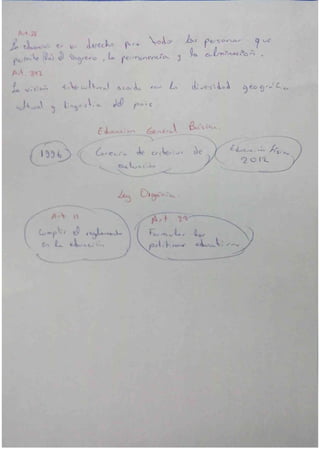 Art. 28
La educación es un derecho para todas las personas que
permite el ingreso, la permanencia y la culminación.
Art. 343
La visión intercultural acorde con la diversidad geográfica
cultural y lingüística del país
Educación General Básica
1996
Carencia de criterios de
evaluación
Educación física
2012
Ley Orgánica
Art 11
Cumplir el reglamento
en la educación
Art
Formular las
políticas educativas